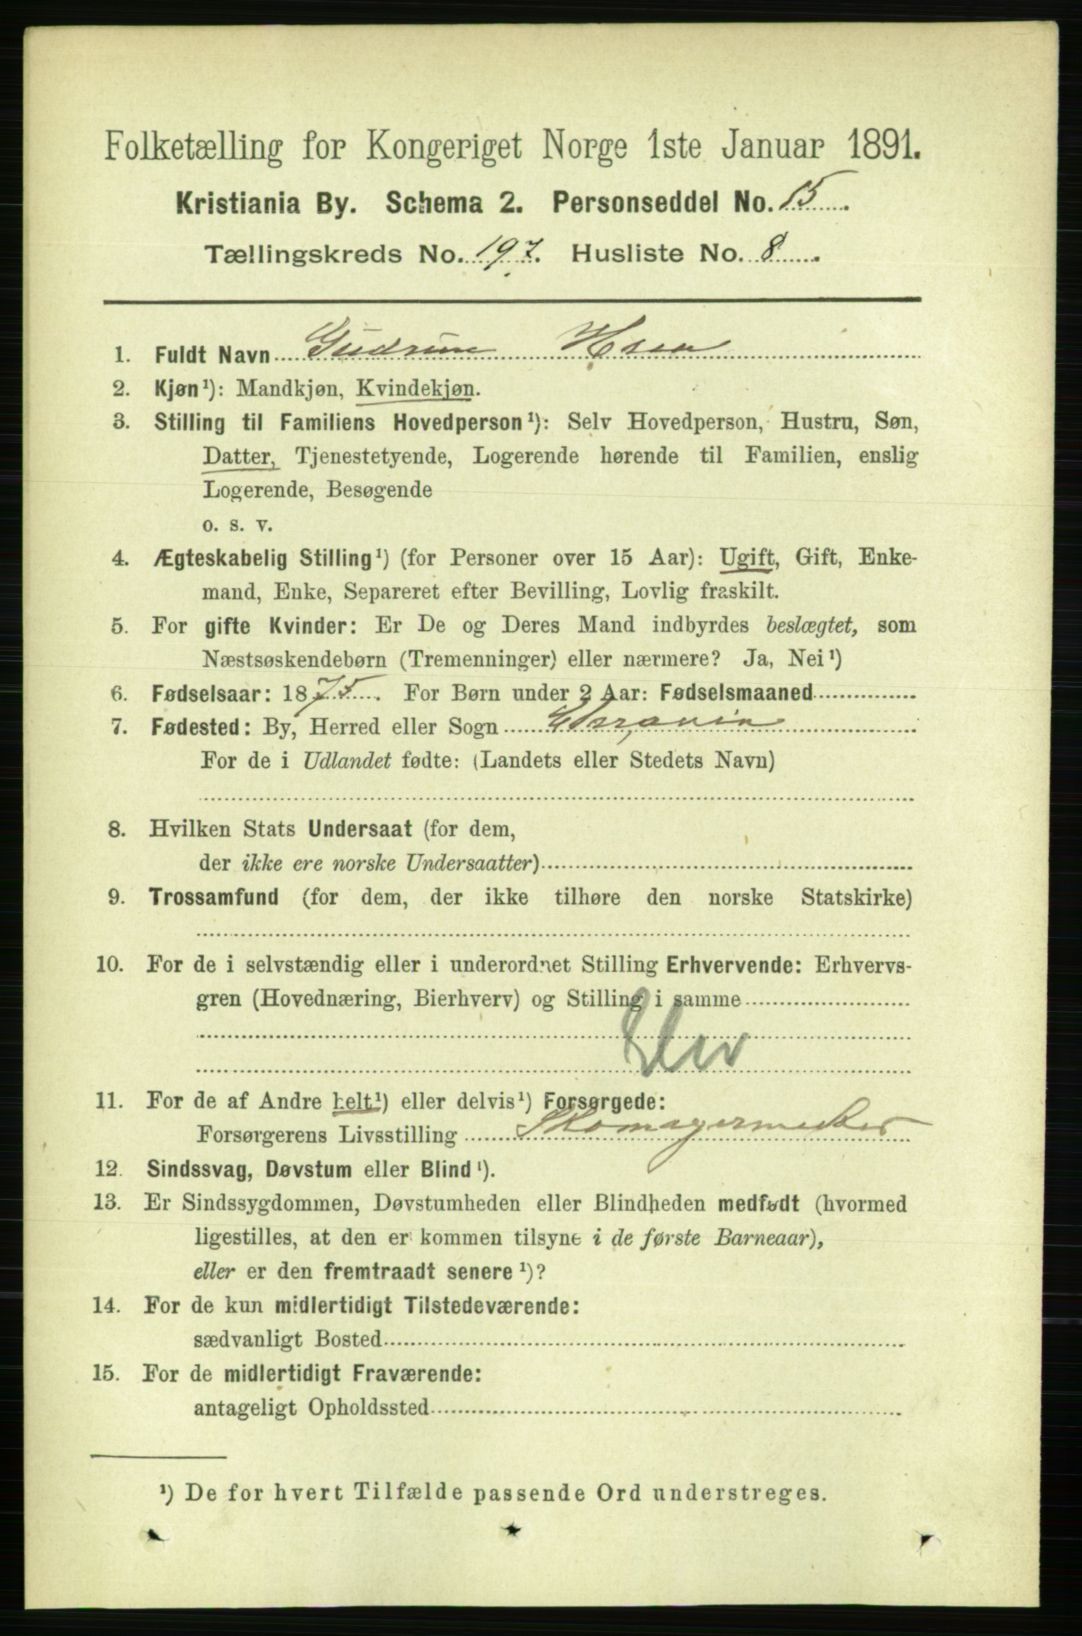 Folketælling for Kongeriget Norge 1ste Januar 1891.
Kristiania By. Schema 2. Personseddel No. 15.
Tællingskreds No. 197. Husliste No. 8.
1. Fuldt Navn Gudrun
2. Kjøn¹): Mandkjøn, Kvindekjøn.
3. Stilling til Familiens Hovedperson¹): Selv Hovedperson, Hustru, Søn,
Datter, Tjenestetyende, Logerende hørende til Familien, enslig
Logerende, Besøgende
o. s. v.
4. Ægteskabelig Stilling¹) (for Personer over 15 Aar): Ugift, Gift, Enke-
mand, Enke, Separeret efter Bevilling, Lovlig fraskilt.
5. For gifte Kvinder: Er De og Deres Mand indbyrdes beslægtet, som
Næstsøskendebørn (Tremenninger) eller nærmere? Ja, Nei¹)
6. Fødselsaar: 1875. For Børn under 2 Aar: Fødselsmaaned
7. Fødested: By, Herred eller Sogn
For de i Udlandet fødte: (Landets eller Stedets Navn)
8. Hvilken Stats Undersaat (for dem,
der ikke ere norske Undersaatter)
9. Trossamfund (for dem, der ikke tilhøre den norske Statskirke)
10. For de i selvstændig eller i underordnet Stilling Erhvervende: Erhvervs-
gren (Hovednæring, Bierhverv) og Stilling i samme
Elev
11. For de af Andre helt¹) eller delvis¹) Forsørgede:
Forsørgerens Livsstilling Skomagermester
12. Sindssvag, Døvstum eller Blind¹).
13. Er Sindssygdommen, Døvstumheden eller Blindheden medfødt (hvormed
ligestilles, at den er kommen tilsyne i de første Barneaar),
eller er den fremtraadt senere¹)?
14. For de kun midlertidigt Tilstedeværende:
sædvanligt Bosted
15. For de midlertidigt Fraværende:
antageligt Opholdssted
¹) De for hvert Tilfælde passende Ord understreges.